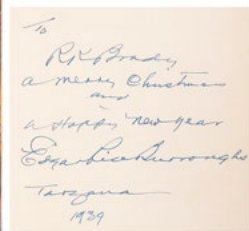 To
R K Brady
a merry Christmas
and
a Happy new year
Edgar Rice Burroughs
Tarzana
1939